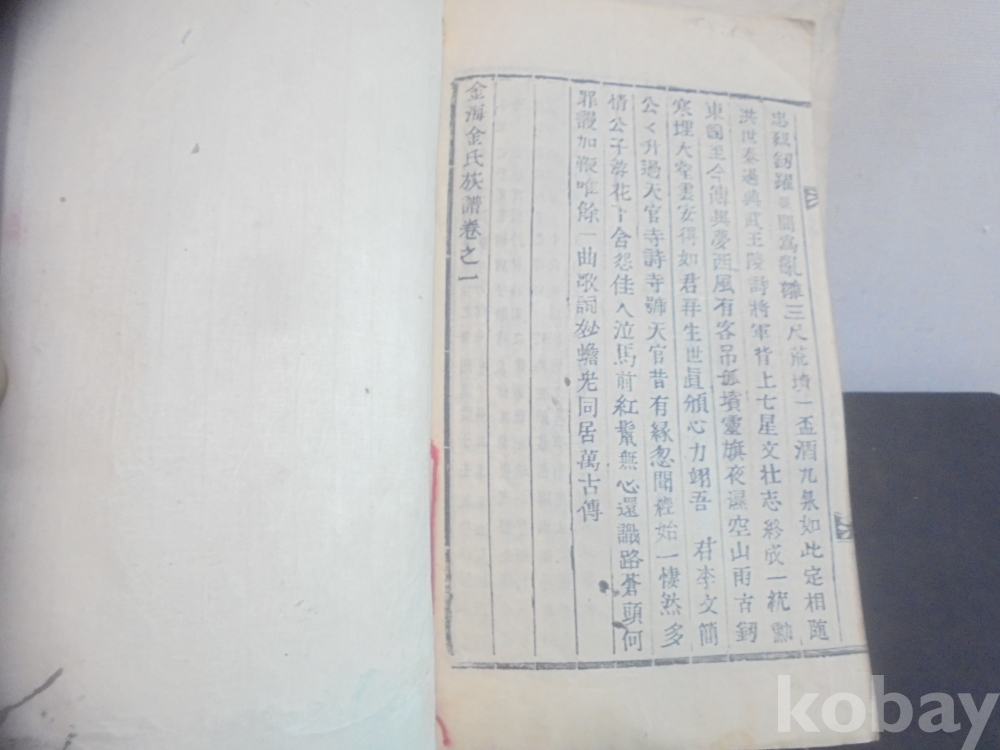 忠題劒躍▢間寫亂離三尺荒墳一盃酒九泉如此定相隨
洪世泰過興武王陵詩將軍背上七星文壯志終成一統勳
東國至今傳異夢西風有客吊孤墳靈旗夜濕空山雨古劒
寒埋大壑雲安得如君再生世眞頒心力翊吾 君李文簡
公〻升過天官寺詩寺號天官昔有緣忽聞經始一悽然多
情公子游花下含怨佳人泣馬前紅鬣無心還識路蒼頭何
罪謾加鞭唯餘一曲歌詞妙蟾兔同居萬古傳
金海金氏族譜卷之一
kobay